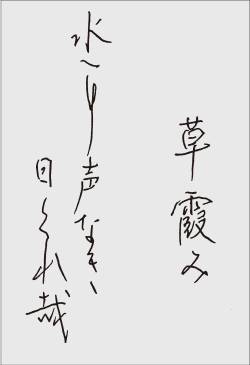 草霞み
水に声なき
日くれ哉